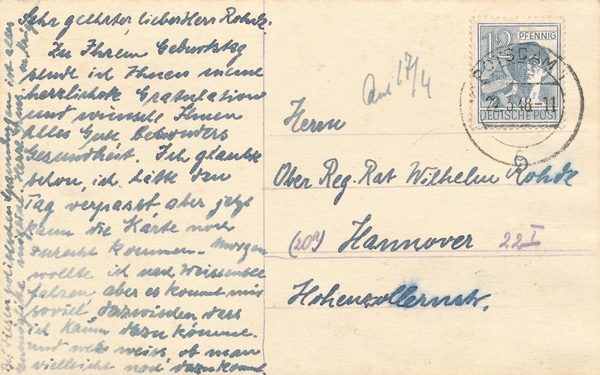 Sehr geehrter lieber Herr Rohde.
Zu Ihrem Geburtstag
sende ich Ihnen meine
herzlichste Gratulation
und wünsche Ihnen
alles Gute besonders
Gesundheit. Ich glaubte
schon, ich hätte den
Tag verpasst aber jetzt
kann die Karte noch
zurecht kommen. Morgen
wollte ich nach Weissensee
fahren aber es kommt mir
soviel dazwischen dass
ich kaum dazu komme
und wer weiss, ob man
vielleicht noch dazu kommt
politischen ist alles
12 PFENNIG
DEUTSCHE POST
POTSDAM
48-11
17/4
Herrn
Ober Reg. Rat Wilhelm Rohde
(20a) Hannover 22 I
Hohenzollernstr.